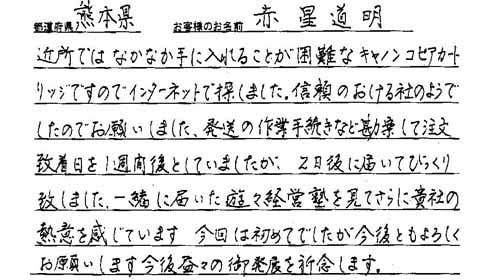 都道府県 熊本県 お客様のお名前 赤星道明
近所ではなかなか手に入れることが困難なキャノンコピアカート
リッジですのでインターネットで探しました。信頼のおける社のようで
したのでお願いしました。発送の作業手続きなど勘案して注文
致着日を1週間後としていましたが、2日後に届いてびっくり
致しました。一緒に届いた遊々経営塾を見てさらに貴社の
熱意を感じています 今回は初めてでしたが今後ともよろしく
お願いします今後益々の御発展を祈念します。